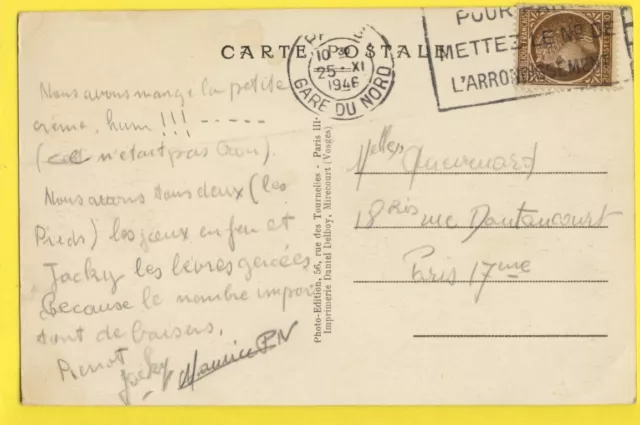 CARTE POSTALE
10 30
25 - XI
1946
GARE DU NORD
POUR
METTEZ LE N° DE
L'ARRONDISSEMENT
Nous avons mangé la petite
crème, hum !!! - - - - -
( n'était pas bon).
Nous avons tous deux (les
Pieds) les joues en feu et
Jacky les lèvres gercées
Because le nombre impor
tant de baisers.
Pierrot
Jacky Maurice P.N
Photo-Edition, 56, rue des Tournelles - Paris III·
Imprimerie Daniel Delboy, Mirecourt (Vosges)
Melles
18 Bis rue Dautancourt
Paris 17me